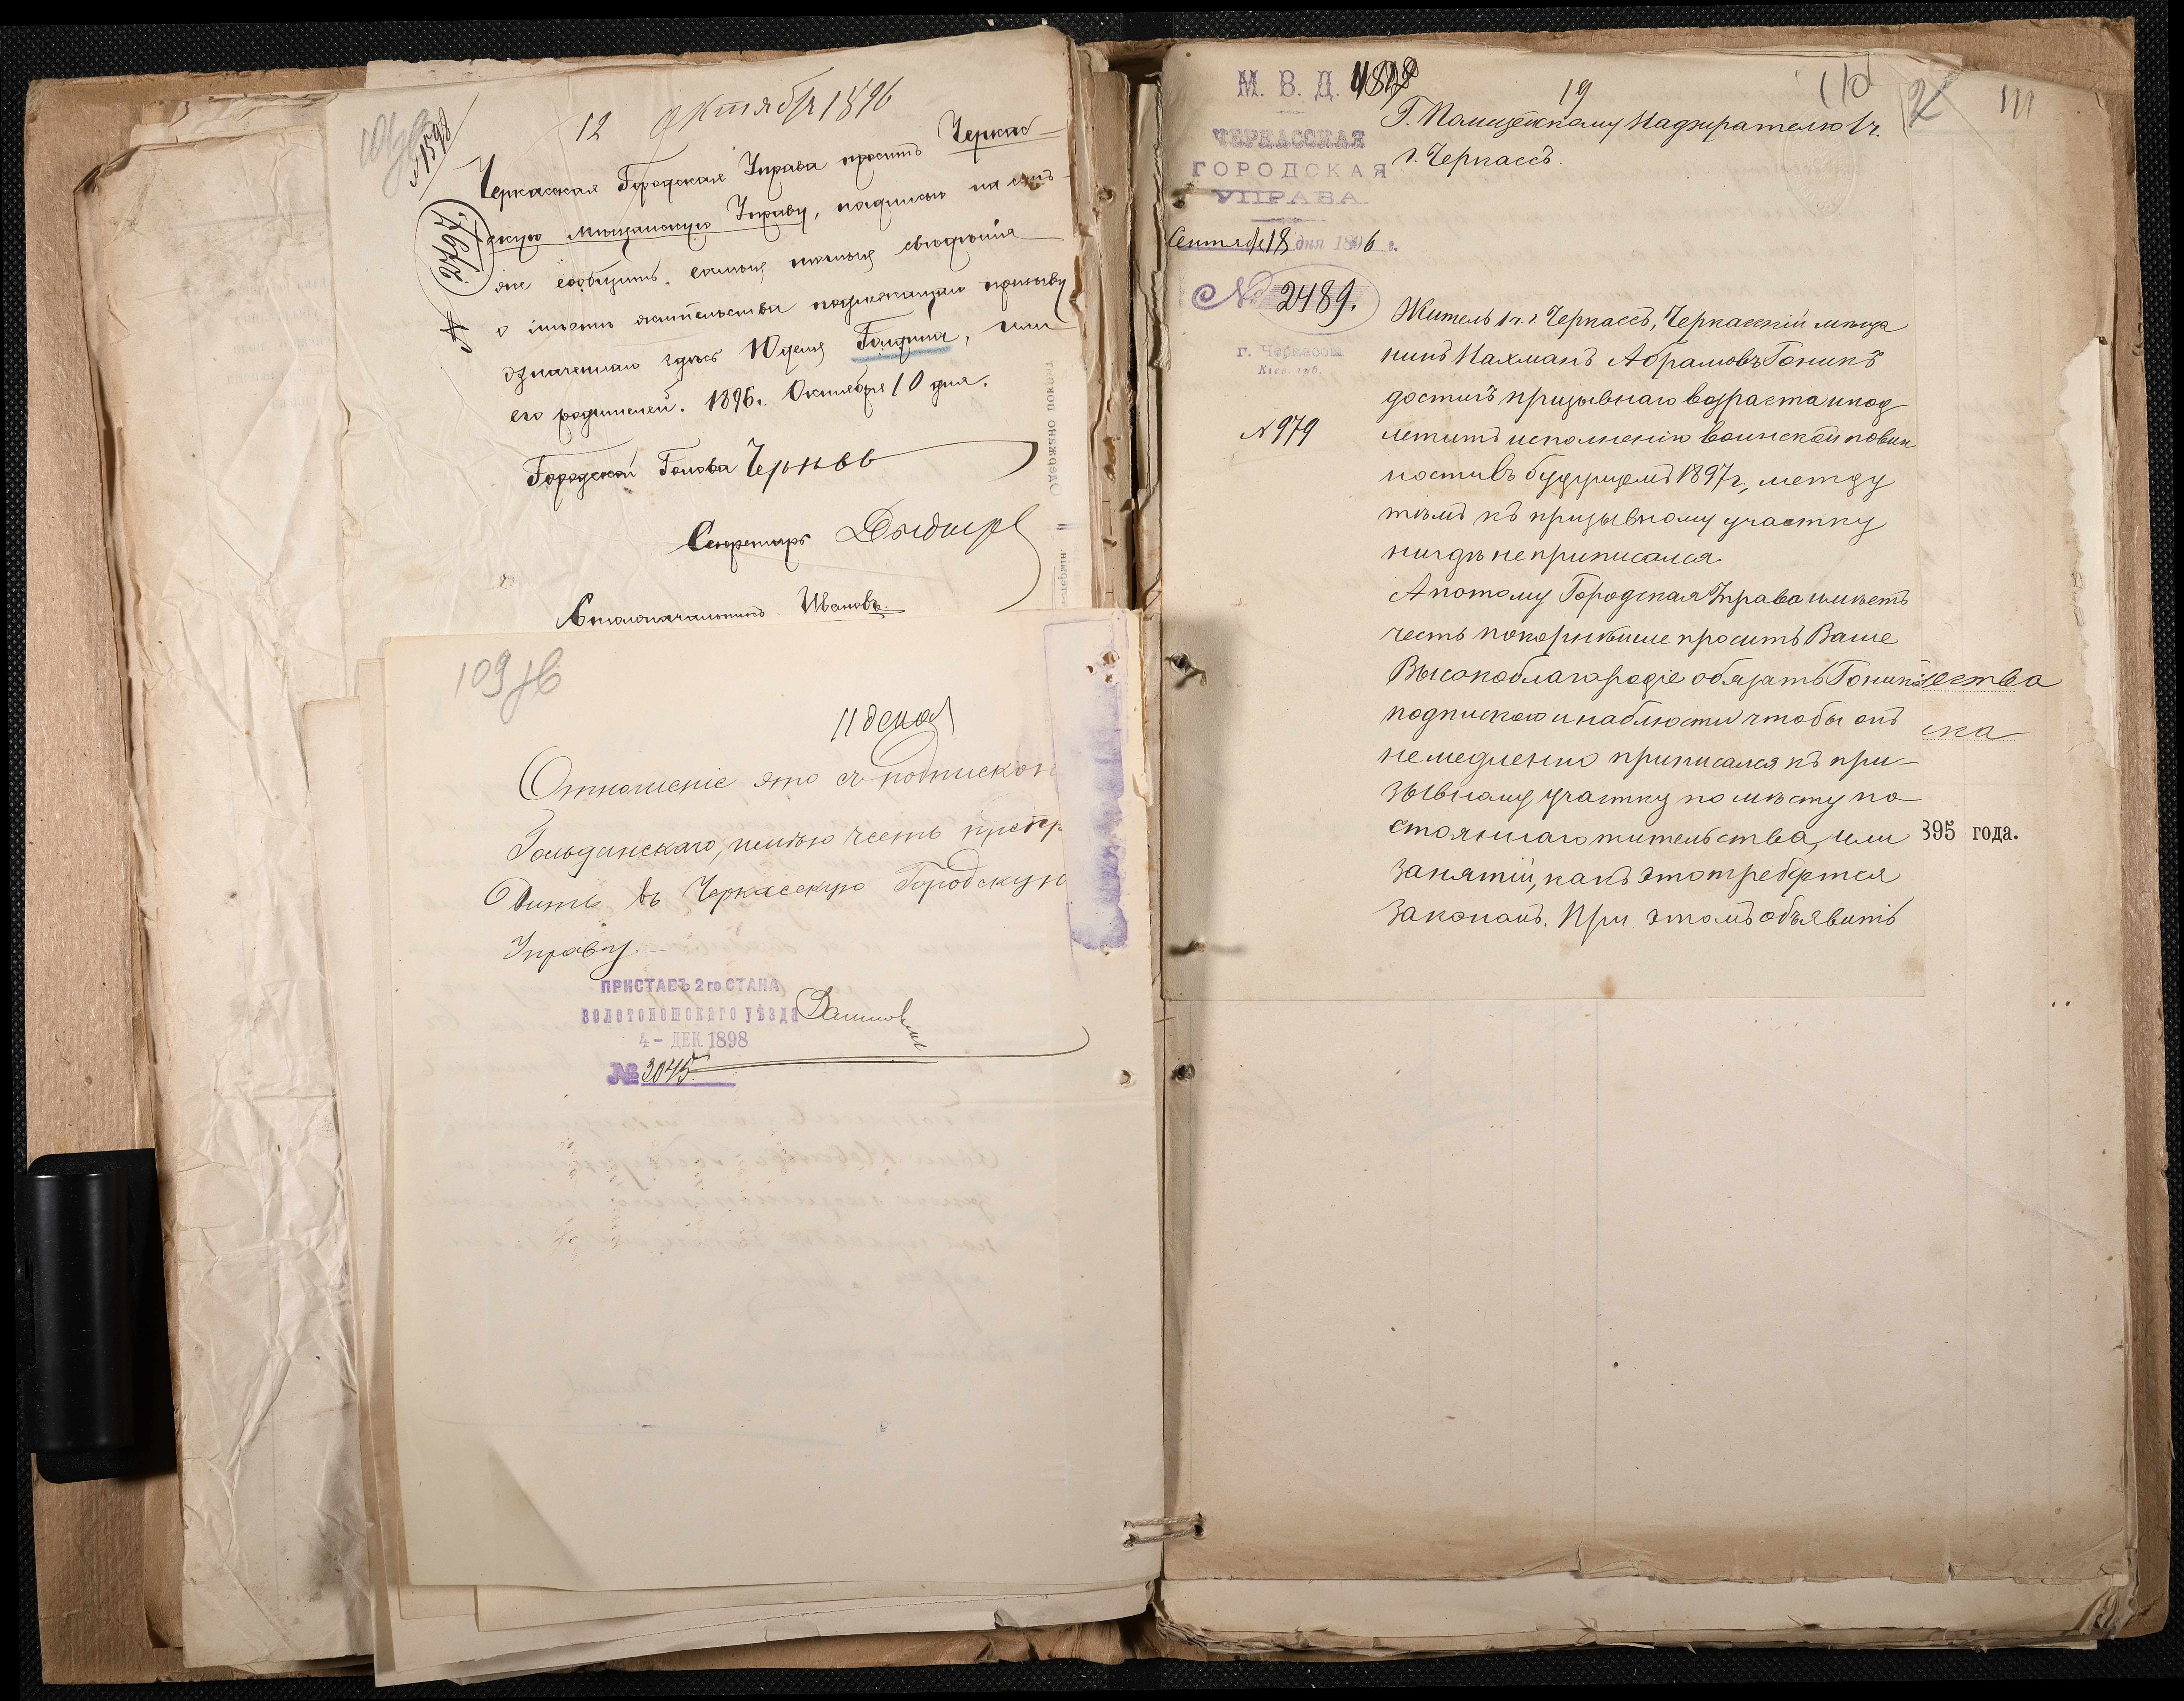 12 октября 1896
№ 1598
Черкасская Городская Управа просить Черкас-
скую Мѣщанскую Управу, надписью на семъ-
же сообщить самыя точныя свѣдѣнія
о мѣстѣ жительства подлежащаго призыву
означеннаго здѣсь Юделя Голдина, или
его родителей. 1896 г. Октября 10 дня.
Городской Голова Чернявъ
Секретарь
Столоначальникъ Ивановъ.
109 об
11 декаб
Отношеніе это съ подпискою
Гольдинскаго, имѣю честь препро
водить въ Черкасскую Городскую
Управу.
ПРИСТАВЪ 2 го СТАНА
ЗОЛОТОНОШСКАГО УѢЗДА
4 - ДЕК 1898
№ 3045.
110
111
2
М. В. Д.
ЧЕРКАССКАЯ
ГОРОДСКАЯ
УПРАВА
Сентября 18 дня 1896 г.
№ 2489.
г. Черкассы
Кіев. губ.
№ 979
19
Г. Полицейскому Надзирателю 1 ч.
г. Черкассъ.
Житель 1 ч. г. Черкассъ, Черкасскій мѣща
нинъ Нахманъ Абрамовъ Гоникъ
достигъ призывнаго возраста и под
лежитъ исполненію воинской повин
ности въ будущемъ 1897 г., между
тѣмъ къ призывному участку
нигдѣ не приписался.
А потому Городская Управа имѣетъ
честь покорнѣйше просить Ваше
Высокоблагородіе обязать Гоника
подпискою и наблюсти чтобы онъ
немедленно приписался къ при-
зывному участку по мѣсту по
стояннаго жительства, или
занятій, какъ это требуется
закономъ. При этомъ объявить
ества
ска
895 года.